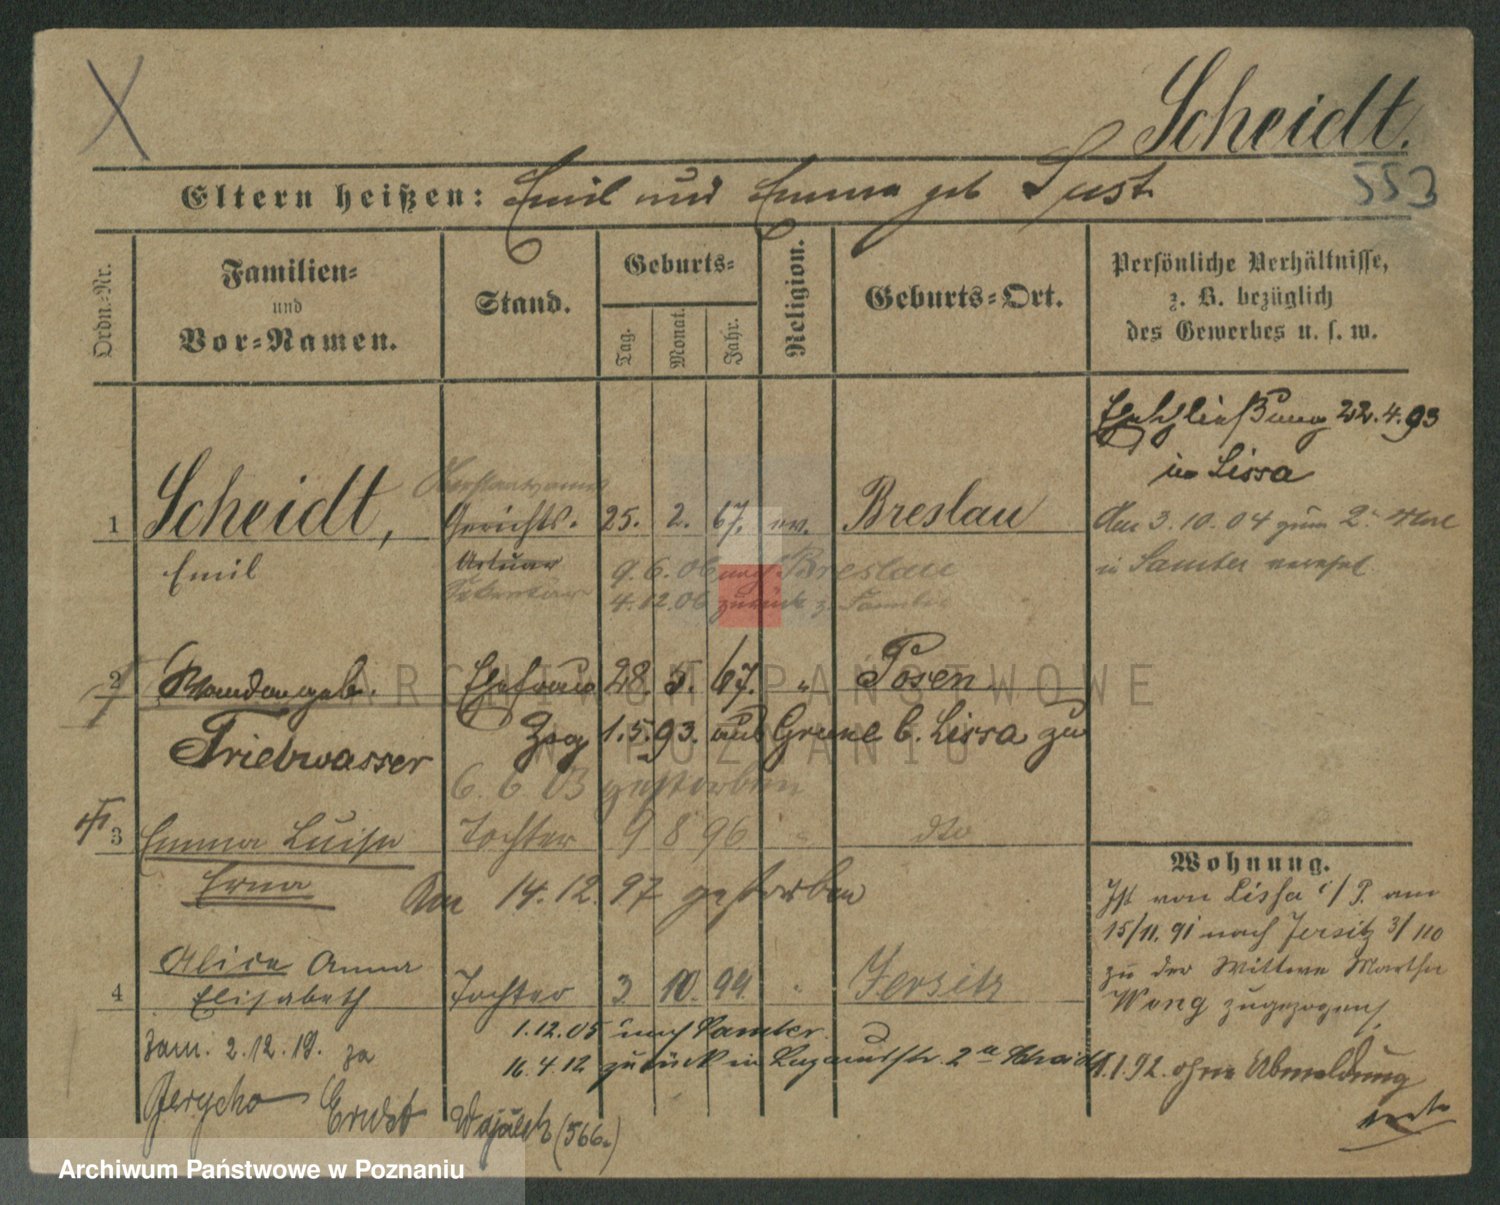 Scheidt.
553
Eltern heißen: Emil und Emma geb Just
Ordn.-Nr.
Familien-
und
Vor-Namen.
Stand.
Geburts-
Tag.
Monat.
Jahr.
Religion.
Geburts-Ort.
Persönliche Verhältnisse,
z. B. bezüglich
des Gewerbes u. s. w.
Eheschließung 22.4.93
in Lissa
1 Scheidt, Gerichts- 25. 2. 67. ev. Breslau
Emil Actuar
Sekretär
9.6.06 nach Breslau
4.12.06 zurück z. Familie
3.10.04 zum 2.
in Samter
2 geb. Ehefrau 28. 5. 67. " Posen
Triebwasser Zzg 1.5.93. aus Grune b. Lissa zu
6. 6 03 gestorben
3 Emma Luise Tochter 9 8 96 " dto
Erna Am 14.12.97 gestorben
4 Alice Anna
Elisabeth Tochter 3 10. 99. " Jersitz
1.12.05 nach Samter.
16.4.12 zurück in
zam. 2.12.19. za
Jerycho Ernst (566.)
Wohnung.
Ist von Lissa i/P. am
15/11. 91 nach Jersitz 3/110
zu der Wittwe Martha
Wong zugezogen
1.1.92. ohne Abmeldung
ARCHIWUM PAŃSTWOWE
W POZNANIU
Archiwum Państwowe w Poznaniu